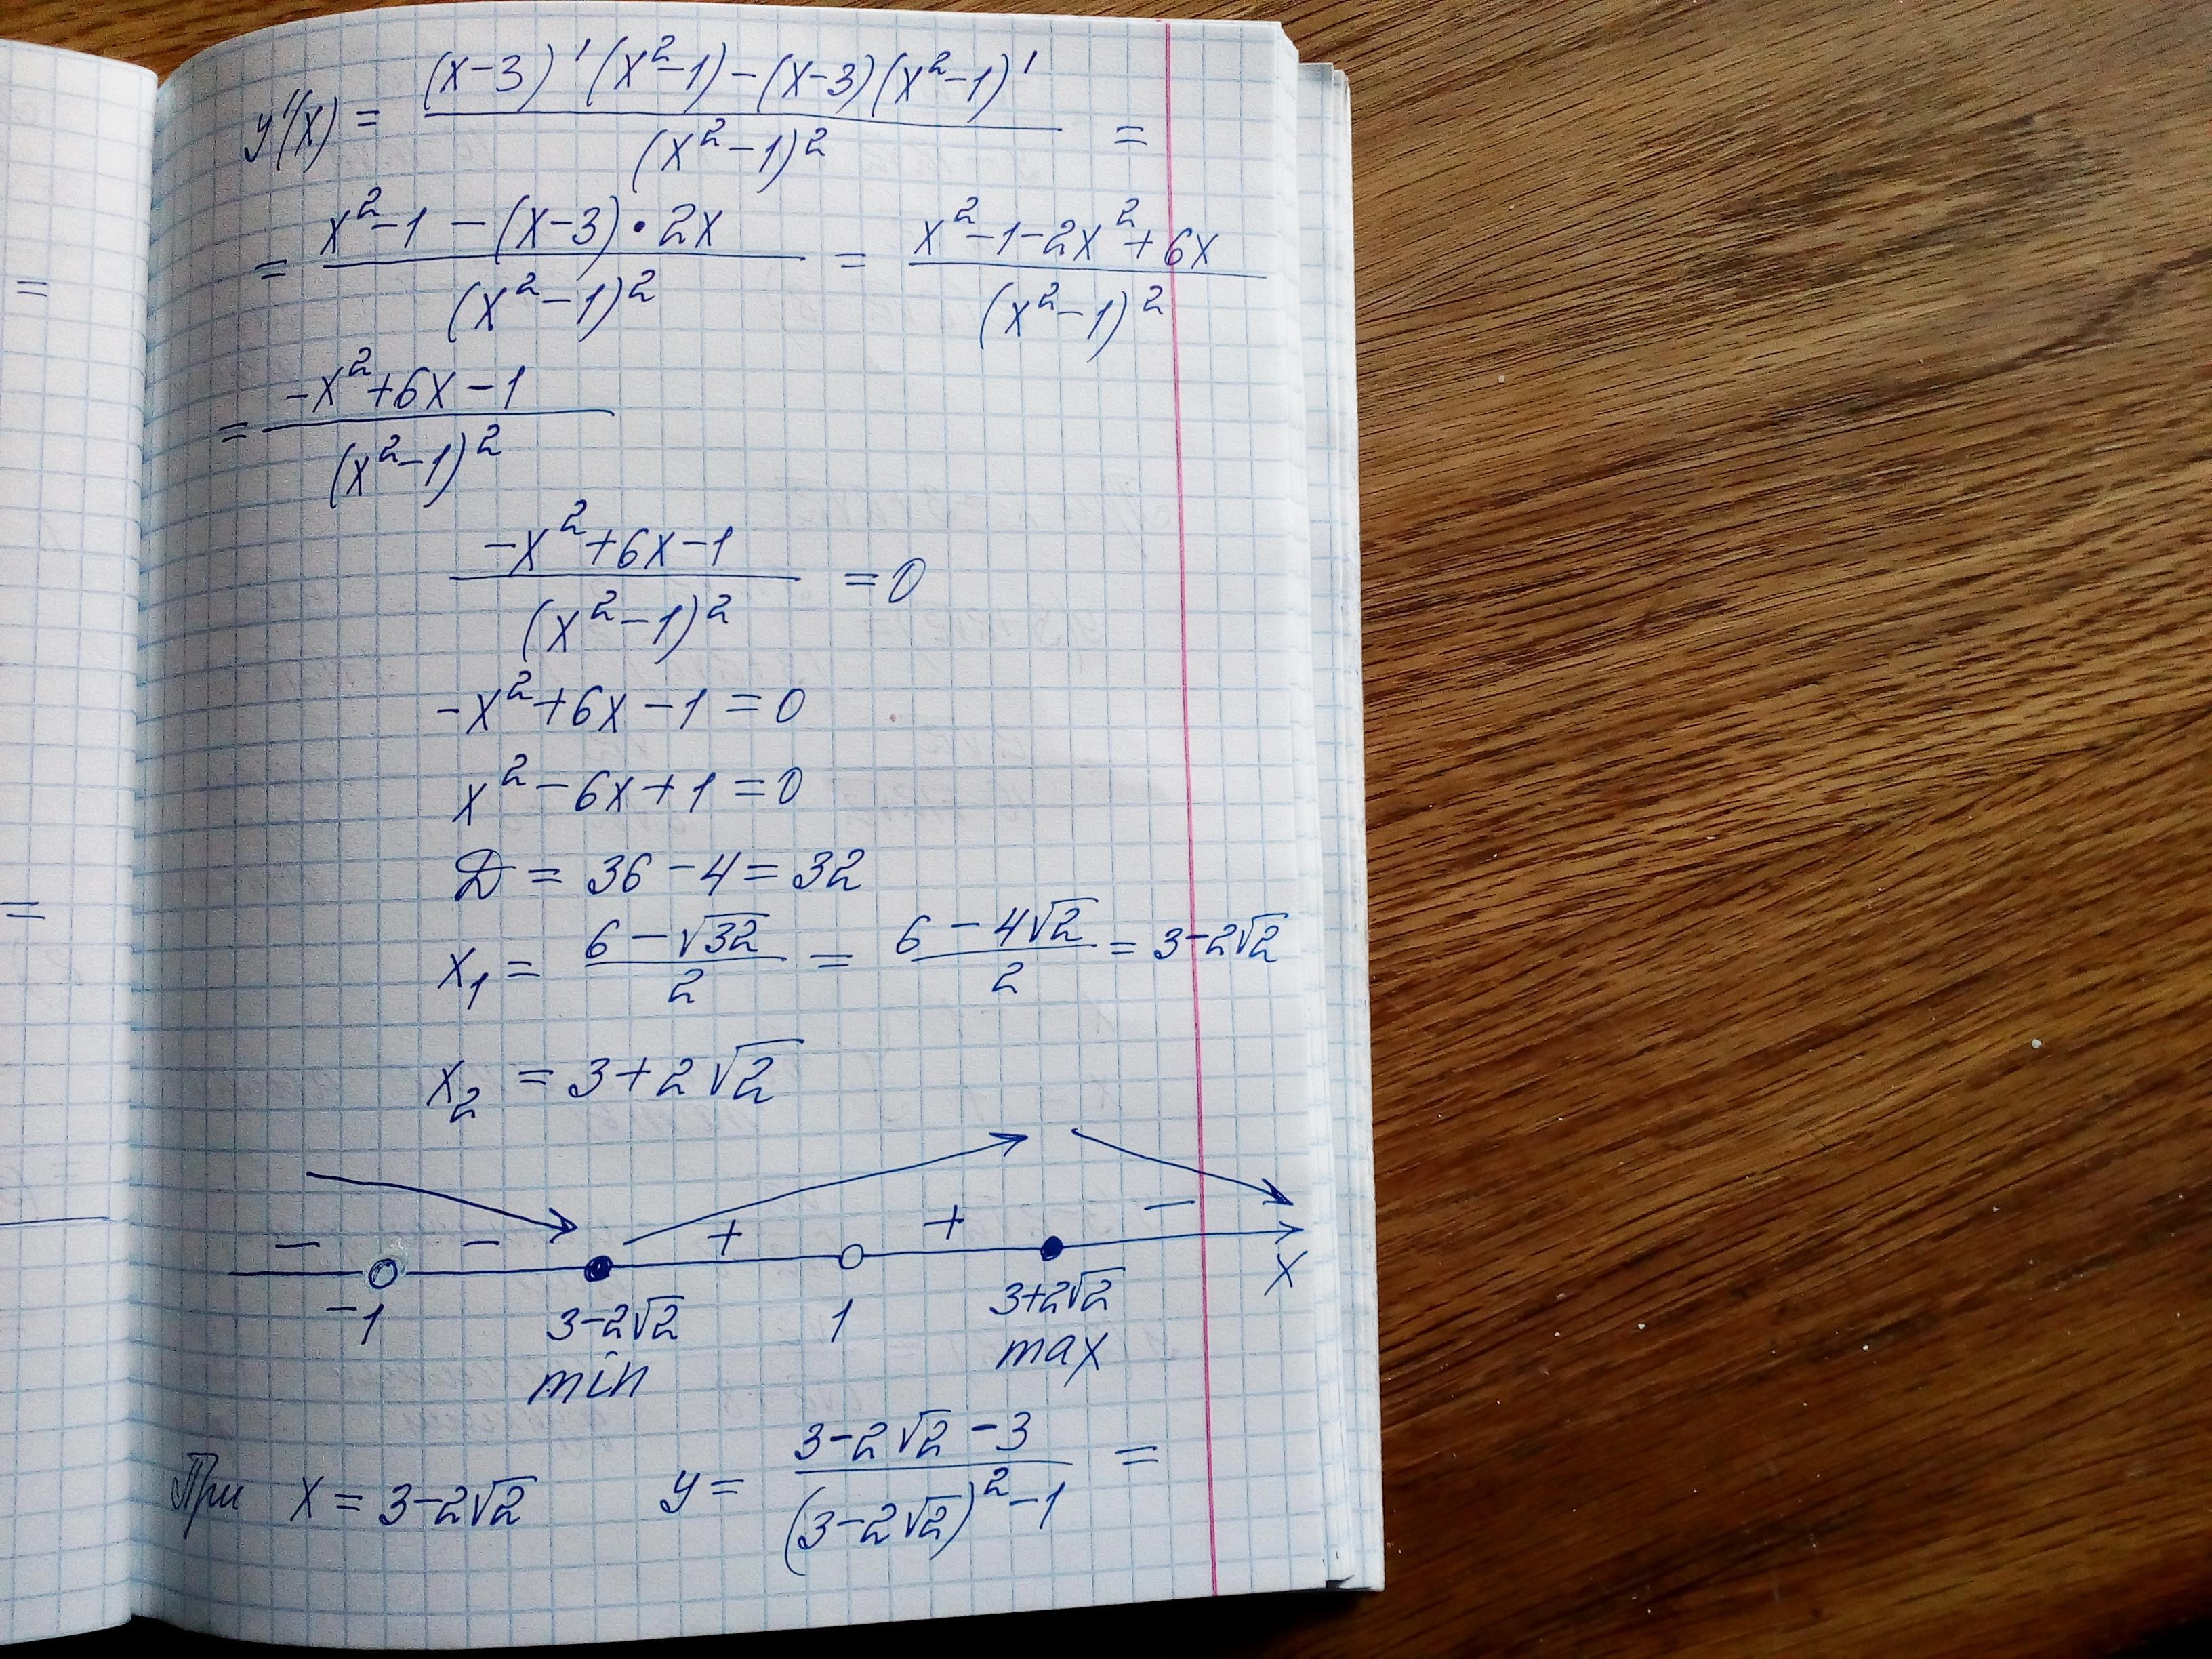 y'(x) = ((x-3)'(x²-1)-(x-3)(x²-1)')/(x²-1)² =
= (x²-1-(x-3)•2x)/(x²-1)² = (x²-1-2x²+6x)/(x²-1)²
= (-x²+6x-1)/(x²-1)²
(-x²+6x-1)/(x²-1)² =0
-x²+6x-1=0
x²-6x+1=0
D = 36-4=32
x₁ = (6-√32)/2 = (6-4√2)/2 = 3-2√2
x₂ = 3+2√2
- - + + -
-1 3-2√2 1 3+2√2 x
min max
При x = 3-2√2 y = (3-2√2-3)/((3-2√2)²-1) =